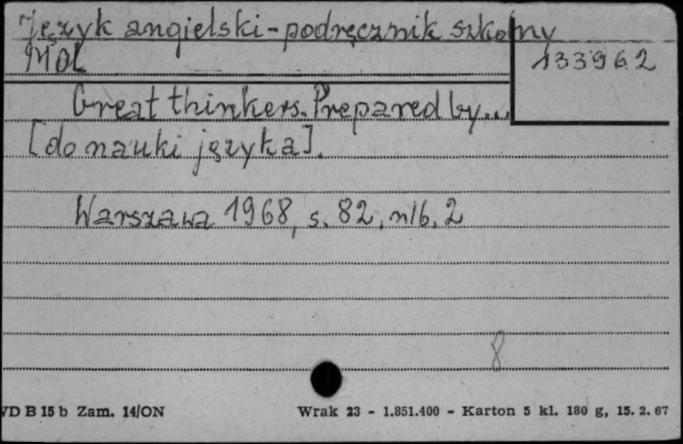 Język angielski - podręcznik szkolny
Mol
133962
Great thinkers. Prepared by...
[do nauki języka].
Warszawa 1968, s. 82, nlb. 2
8
VD B 15 b Zam. 14/ON
Wrak 23 - 1.851.400 - Karton 5 kl. 180 g, 15. 2. 67